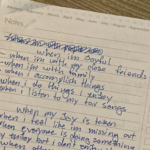 Notes
when im Joyful
when im with my close friends
when im with family
when i accomplish things
when i do things i
when i listen to my fav songs
Why my Joy is taken
when i feel like im missing out
when everyone is doing something
today but i don't
when